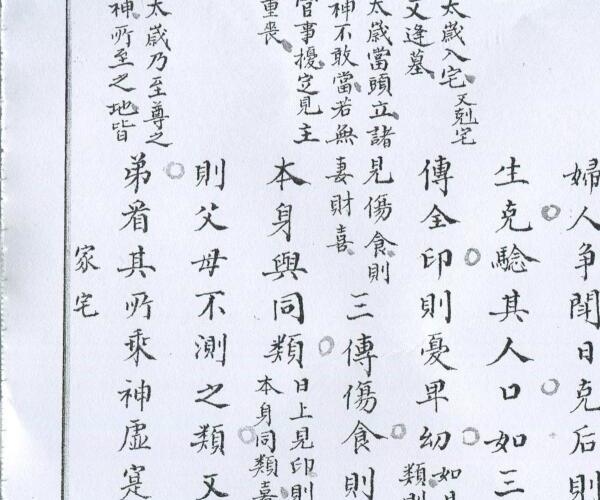 太歲入宅又剋宅
又逢墓
太歲當頭立諸
神不敢當若無
官事擾定見主
重喪
太歲乃至尊之
神所至之地皆
婦人爭鬧日克后則
生克驗其人口如三
傳全印則憂卑幼如
類
見傷食則
妻財喜
三傳傷食則
本身與同類
日上見印則
本身同類喜
則父母不測之類又
弟看其所乘神虛寔
家宅